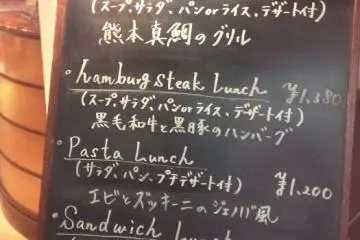 (スープ、サラダ、パンorライス、デザート付)
熊本真鯛のグリル
・hamburg steak Lunch ¥1,380
(スープ、サラダ、パンorライス、デザート付)
黒毛和牛と黒豚のハンバーグ
・Pasta Lunch
(サラダ、パン、プチデザート付) ¥1,200
エビとズッキーニのジェノバ風
・Sandwich Lunch